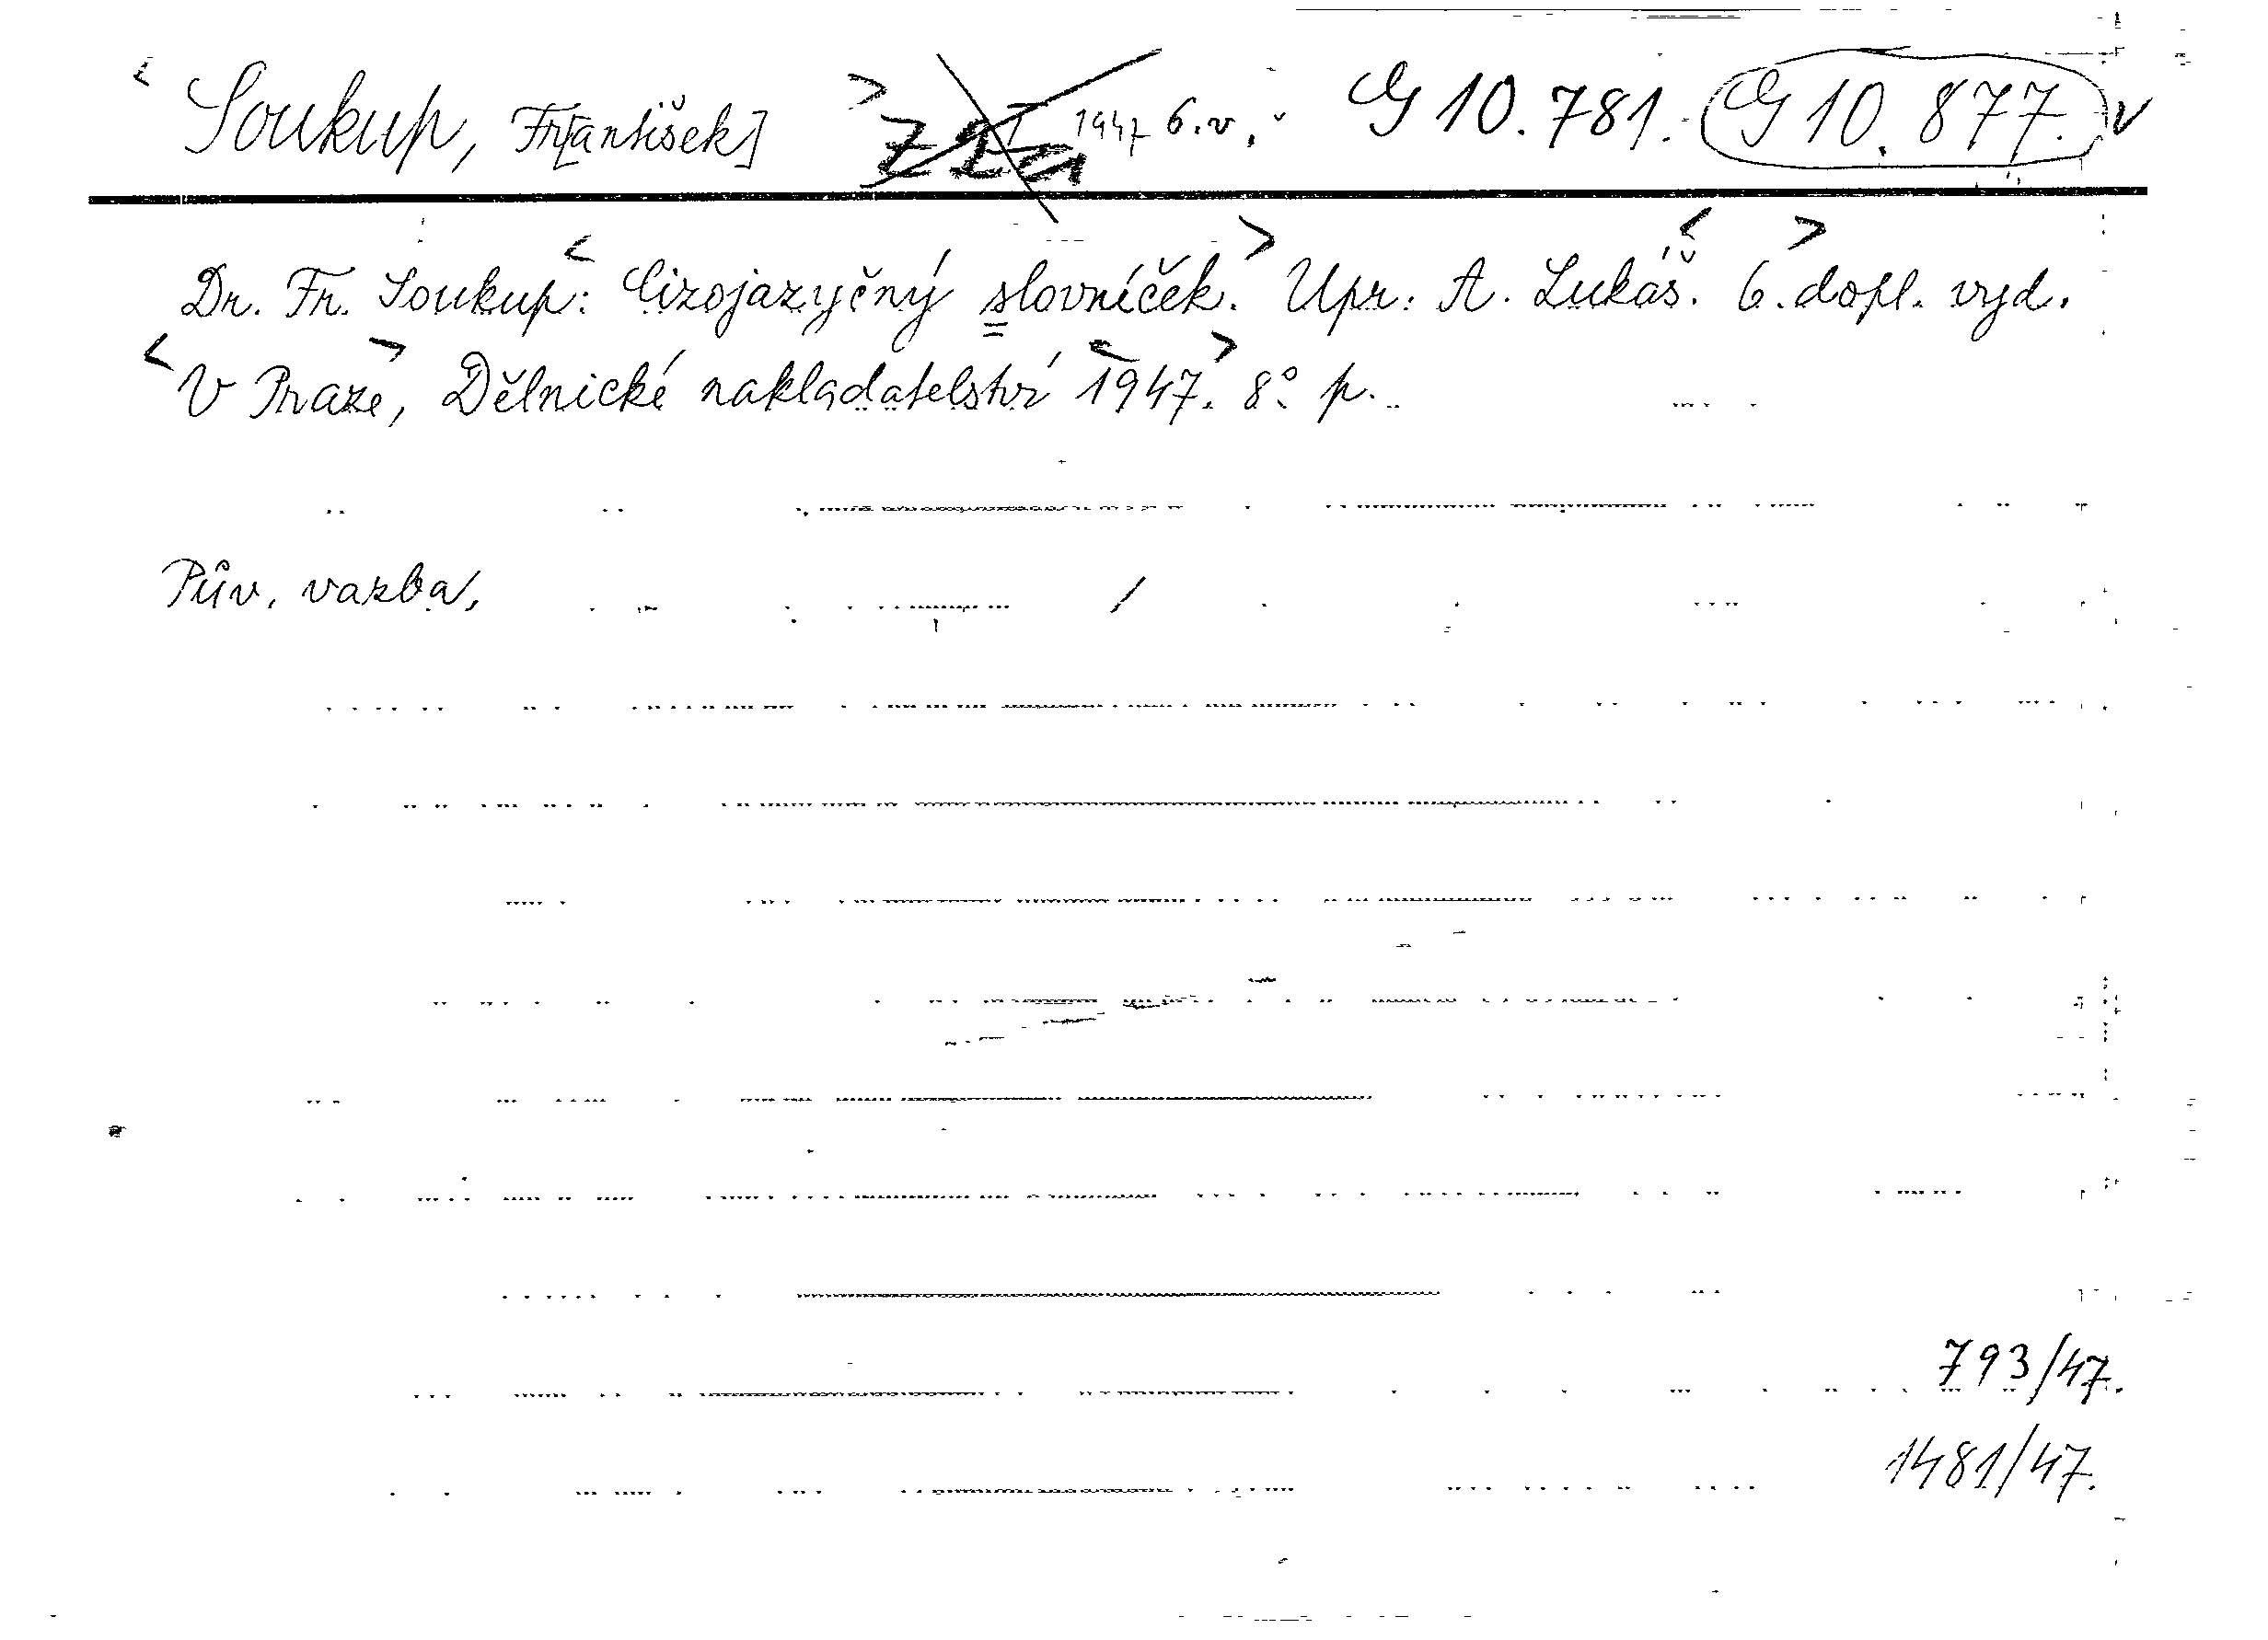 < Soukup, Fr[antišek] > 1947 6. v. G 10.781. G 10.877. v
Dr. Fr. Soukup: < Cizojazyčný slovníček. > Upr. A. Lukáš. < 6. > dopl. vyd.
< V Praze >, Dělnické nakladatelství < 1947. > 8° p.
Pův. vazba, /
793/47.
1481/47.